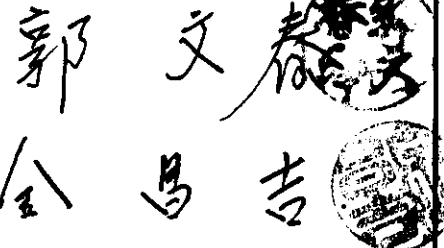 郭文春
全昌吉